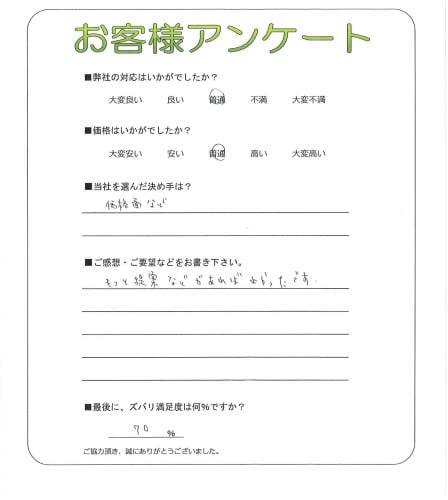 お客様アンケート
■弊社の対応はいかがでしたか？
大変良い 良い 普通 不満 大変不満
■価格はいかがでしたか？
大変安い 安い 普通 高い 大変高い
■当社を選んだ決め手は？
価格面など
■ご感想・ご要望などをお書き下さい。
もっと提案などがあればよかったです.
■最後に、ズバリ満足度は何％ですか？
70 ％
ご協力頂き、誠にありがとうございました。